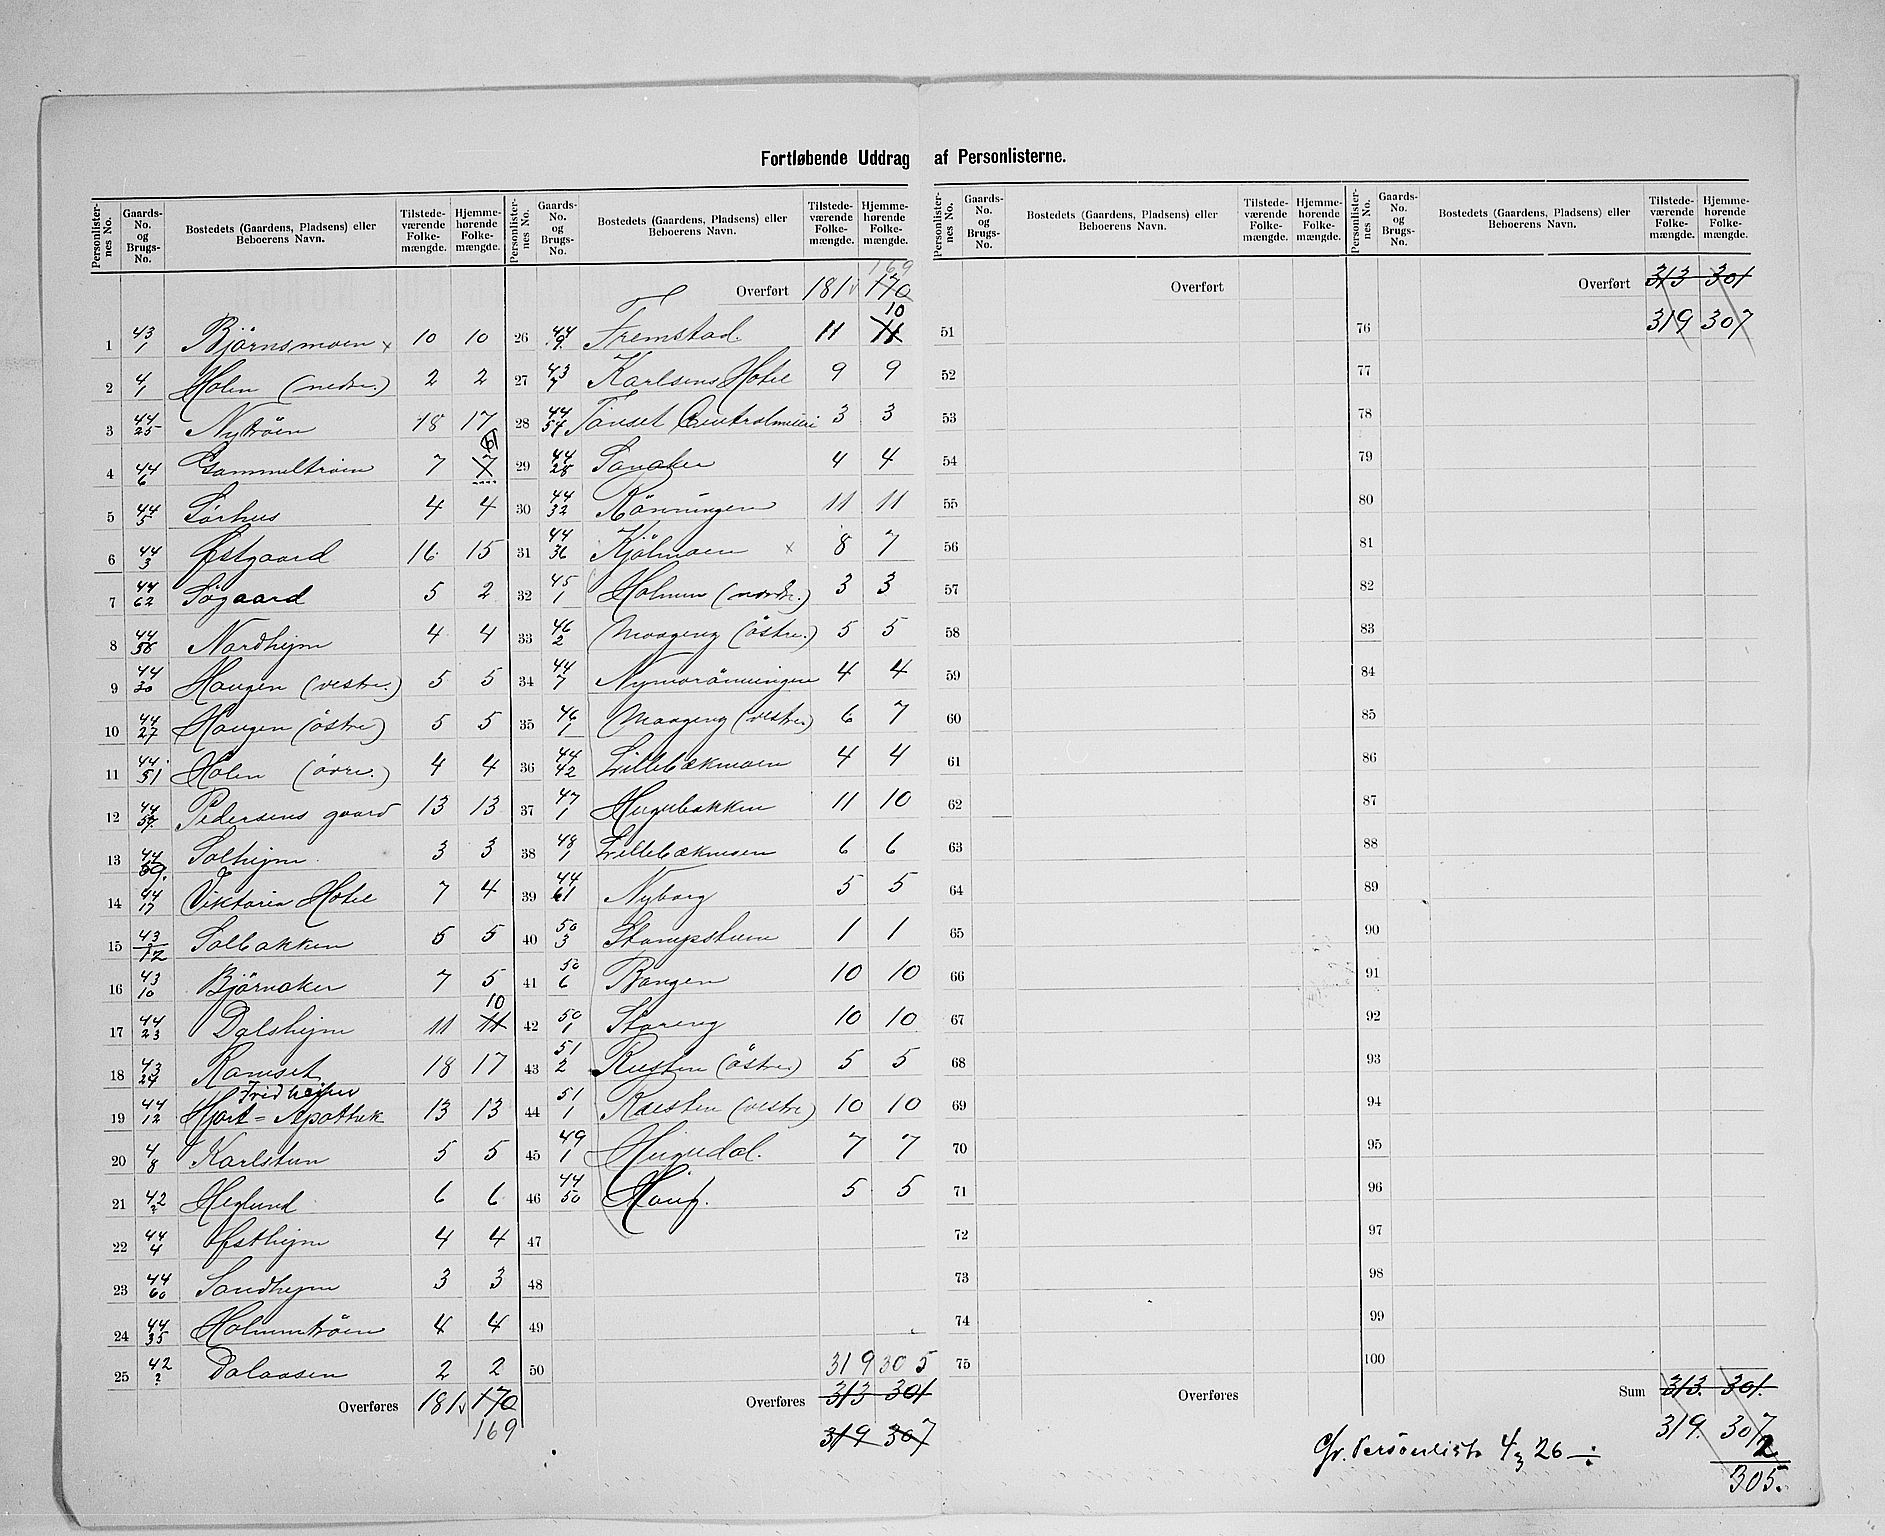 Fortløbende Uddrag af Personlisterne.
Personlister-nes No. | Gaards-No. og Brugs-No. | Bostedets (Gaardens, Pladsens) eller Beboerens Navn. | Tilstede-værende Folke-mængde. | Hjemme-hørende Folke-mængde.
1 43/1 Björnsmoen x 10 10
2 4/1 Holen (nedre.) 2 2
3 44/25 Nytröen 18 17
4 44/6 Gammeltröen 7 7
5 44/5 Sörhus 4 4
6 44/3 Östgaard 16 15
7 44/62 Søgaard 5 2
8 44/58 Nordhejm 4 4
9 44/30 Haugen (vestre.) 5 5
10 44/27 Haugen (östre) 5 5
11 44/51 Holen (övre.) 4 4
12 44/57. Pedersens gaard 13 13
13 44/59. Solhejm 3 3
14 44/17 Viktoria Hotel 7 4
15 43/12 Solbakken 5 5
16 43/10 Björnaker 7 5
17 44/23 Dalshejm 11 11 10
18 43/24 Ramset 18 17
Fridheim
19 44/12 Hjort = Apothek 13 13
20 4/8 Karlstun 5 5
21 42/2 Heglund 6 6
22 44/4 Østhejm 4 4
23 44/60 Sandhejm 3 3
24 44/35 Holmentröen 4 4
25 42/2 Dalaasen 2 2
Overføres 181 v 170
169
Personlister-nes No. | Gaards-No. og Brugs-No. | Bostedets (Gaardens, Pladsens) eller Beboerens Navn. | Tilstede-værende Folke-mængde. | Hjemme-hørende Folke-mængde.
169
Overført 181 v 170
10
26 44/9. Fremstad. 11 11
27 43/7 Karlsens Hotel 9 9
28 44/54 Tönset Centralmeieri 3 3
29 44/28 Sanaker 4 4
30 44/32 Rönningen 11 11
31 44/36 Kjölmoen x 8 7
32 45/1 Holmen (nordre.) 3 3
33 46/2 Moageng (östre.) 5 5
34 44/7 Nymorönningen 4 4
35 46/1 Moageng (vestre.) 6 7
36 44/42 Lillebækmoen 4 4
37 47/1 Hugubakken 11 10
38 48/1 Lillebækmoen 6 6
39 44/61 Nyborg 5 5
40 50/3 Stampstuen 1 1
41 50/6 Bangen 10 10
42 50/1 Storeng 10 10
43 51/2 Rusten (östre.) 5 5
44 51/1 Rusten (vestre) 10 10
45 49/1 Hugudal. 7 7
46 44/50 Hauf. 5 5
47
48
49
50 319 305
Overføres 313 301
319 307
Personlister-nes No. | Gaards-No. og Brugs-No. | Bostedets (Gaardens, Pladsens) eller Beboerens Navn. | Tilstede-værende Folke-mængde. | Hjemme-hørende Folke-mængde.
Overført
51
52
53
54
55
56
57
58
59
60
61
62
63
64
65
66
67
68
69
70
71
72
73
74
75
Overføres
Personlister-nes No. | Gaards-No. og Brugs-No. | Bostedets (Gaardens, Pladsens) eller Beboerens Navn. | Tilstede-værende Folke-mængde. | Hjemme-hørende Folke-mængde.
Overført 313 301
76 319 307
77
78
79
80
81
82
83
84
85
86
87
88
89
90
91
92
93
94
95
96
97
98
99
100
Sum 313. 301.
319. 307
Cfr. Personliste 4, 26 ÷ 2
305.